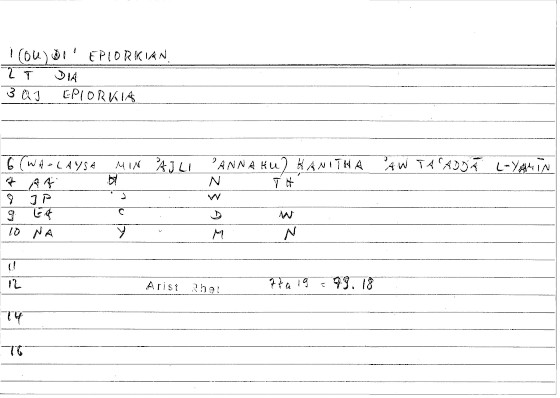 1 (OU) DI' EPIORKIAN
2 T DIA
3 QJ EPIORKIA
6 (WA-LAYSA MIN 'AJLI 'ANNAHU) KANITHA 'AW TAʿADDĀ L-YAMĪN
7 AA Ḥ N TH
9 JP ' W
9 EA C D W
10 NA Y M N
11
12 Arist Rhet 77a19 = 79.18
14
16